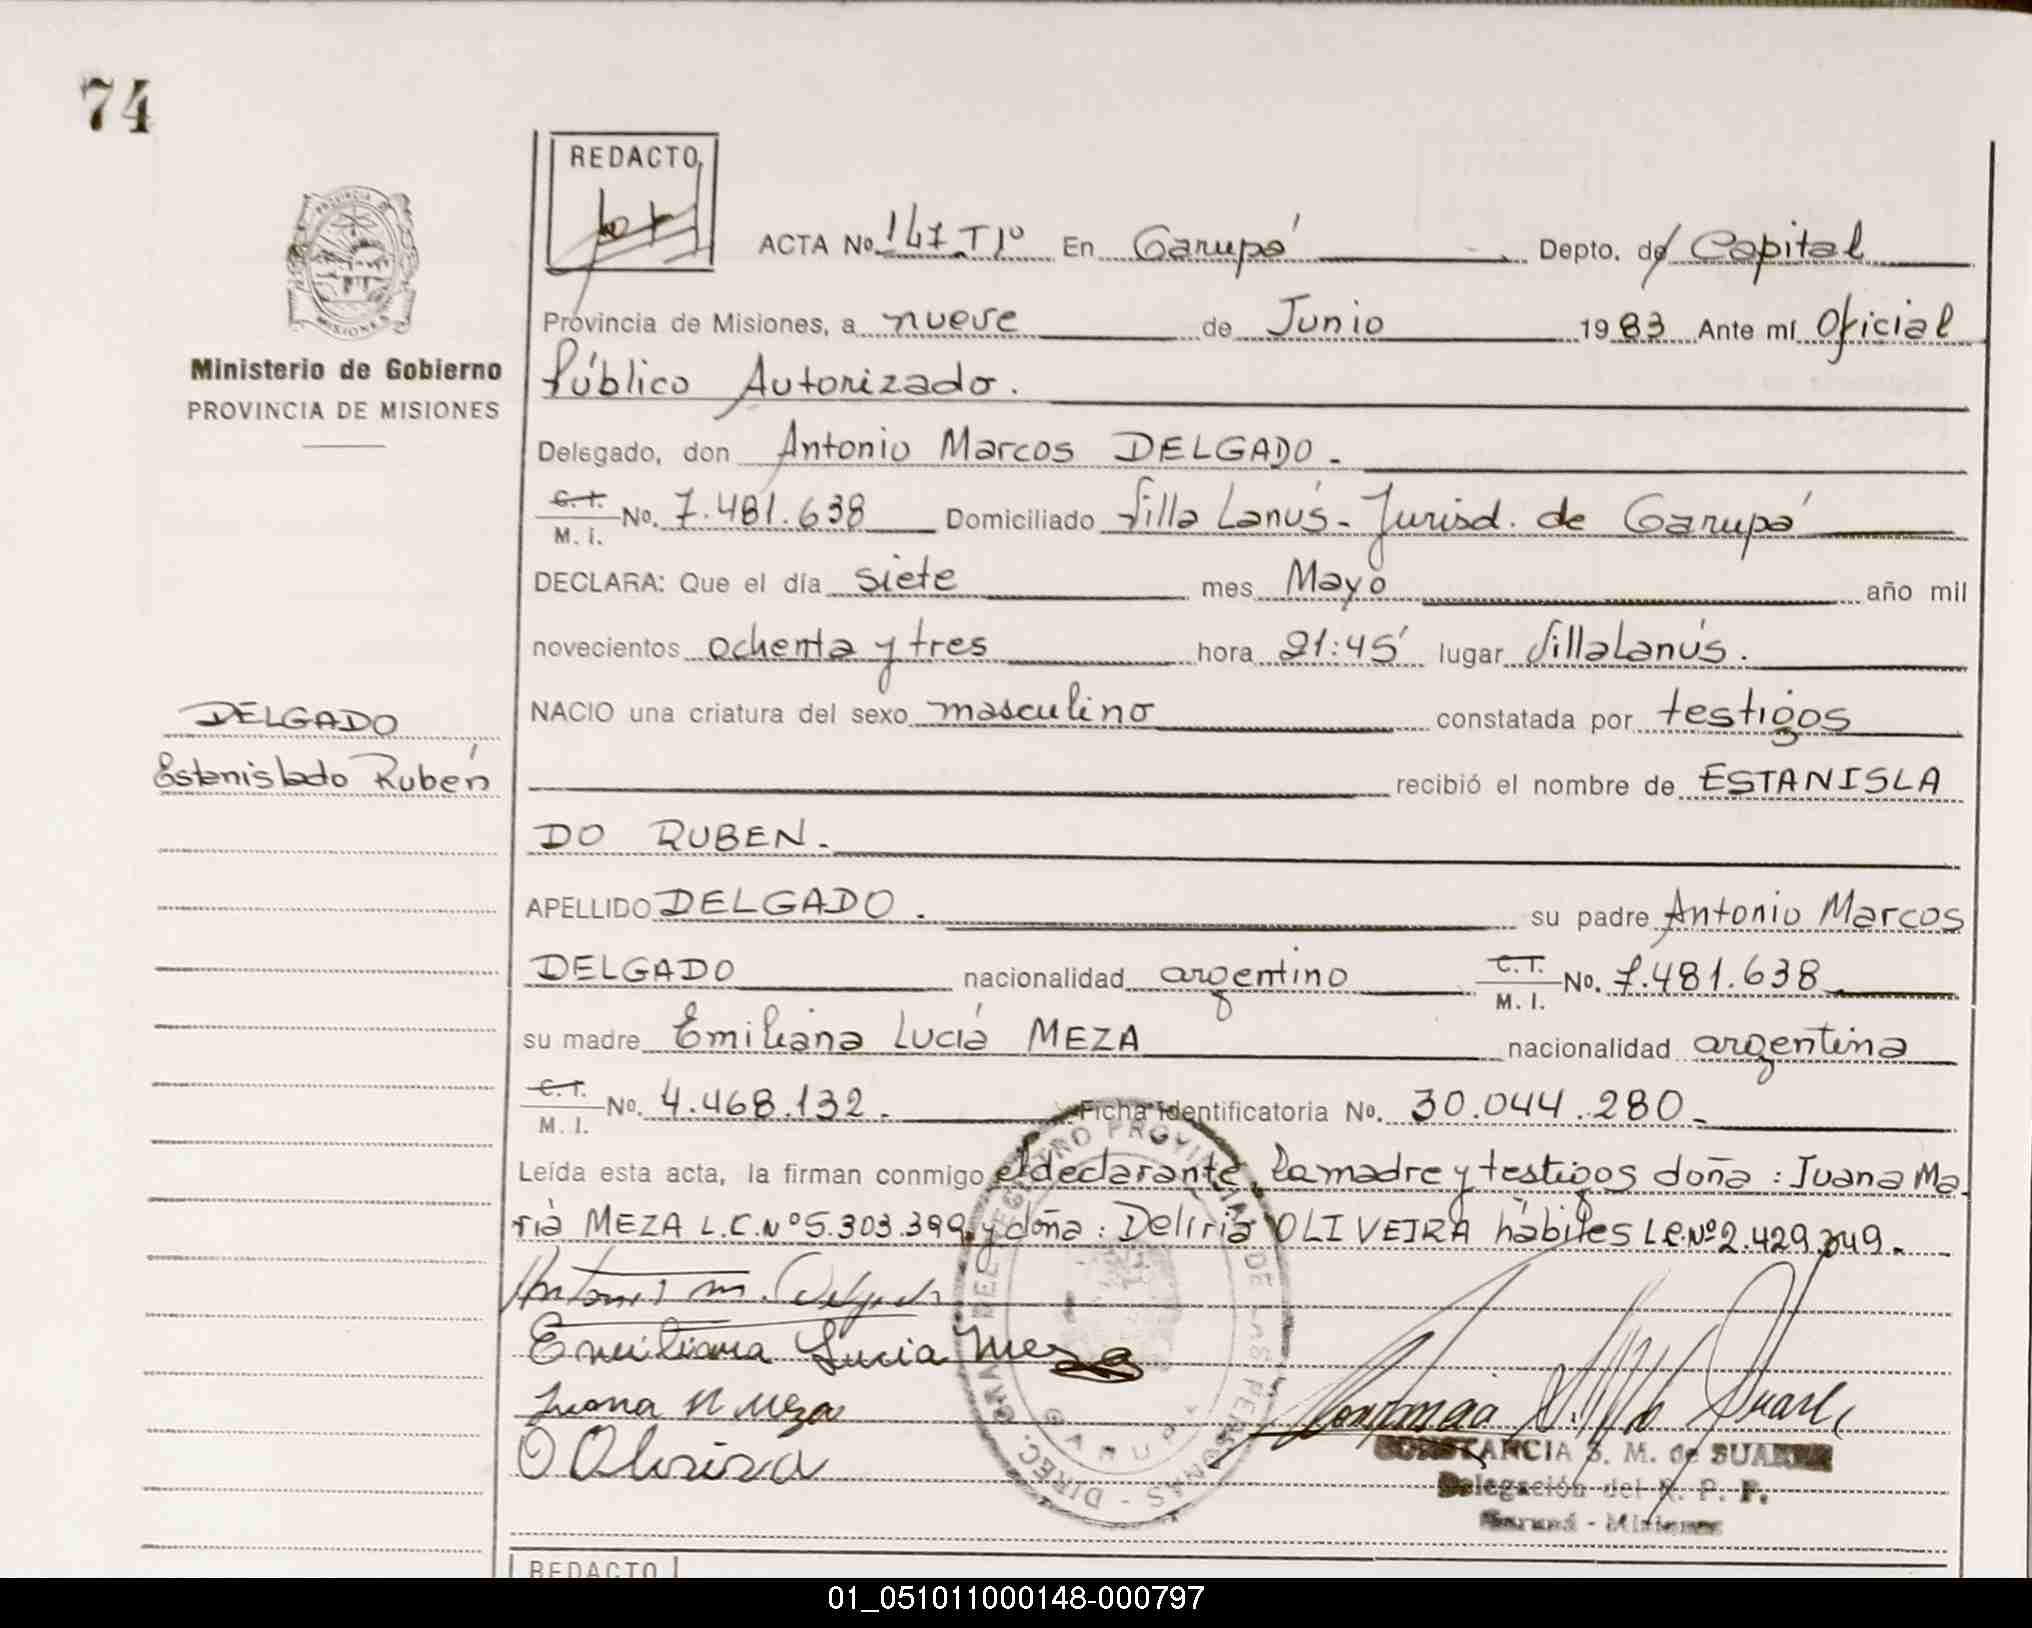 74
REDACTO
PROVINCIA DE
MISIONES
Ministerio de Gobierno
PROVINCIA DE MISIONES
ACTA No. 147 T1º En Garupá Depto. de Capital
Provincia de Misiones, a nueve de Junio 1983 Ante mí Oficial
Público Autorizado.
Delegado, don Antonio Marcos DELGADO.
C. I. M. I. No. 7.481.638 Domiciliado Villa Lanús - Jurisd. de Garupá
DECLARA: Que el día siete mes Mayo año mil
novecientos ochenta y tres hora 21:45' lugar Villa Lanús.
NACIO una criatura del sexo masculino constatada por testigos
DELGADO
Estanislado Rubén
recibió el nombre de ESTANISLA
DO RUBEN.
APELLIDO DELGADO. su padre Antonio Marcos
DELGADO nacionalidad argentino C.I. M. I. No. 7.481.638
su madre Emiliana Lucía MEZA nacionalidad argentina
C.I. M. I. No. 4.468.132. Ficha Identificatoria No. 30.044.280
Leída esta acta, la firman conmigo el declarante, la madre y testigos doña: Juana Ma
ría MEZA L.C.Nº 5.303.399 y doña: Deliria OLIVEIRA hábiles L.C.Nº 2.429.
Antonio M. Delgado
Emiliana Lucia Meza
Juana M Meza
D Oliveira
DIREC. GRAL. DEL REGISTRO PROVINCIAL DE LAS PERSONAS
GARUPA
CONSTANCIA S. M. de SUAREZ
Delegación del R. P. P.
Garupá - Misiones
REDACTO
01_051011000148-000797